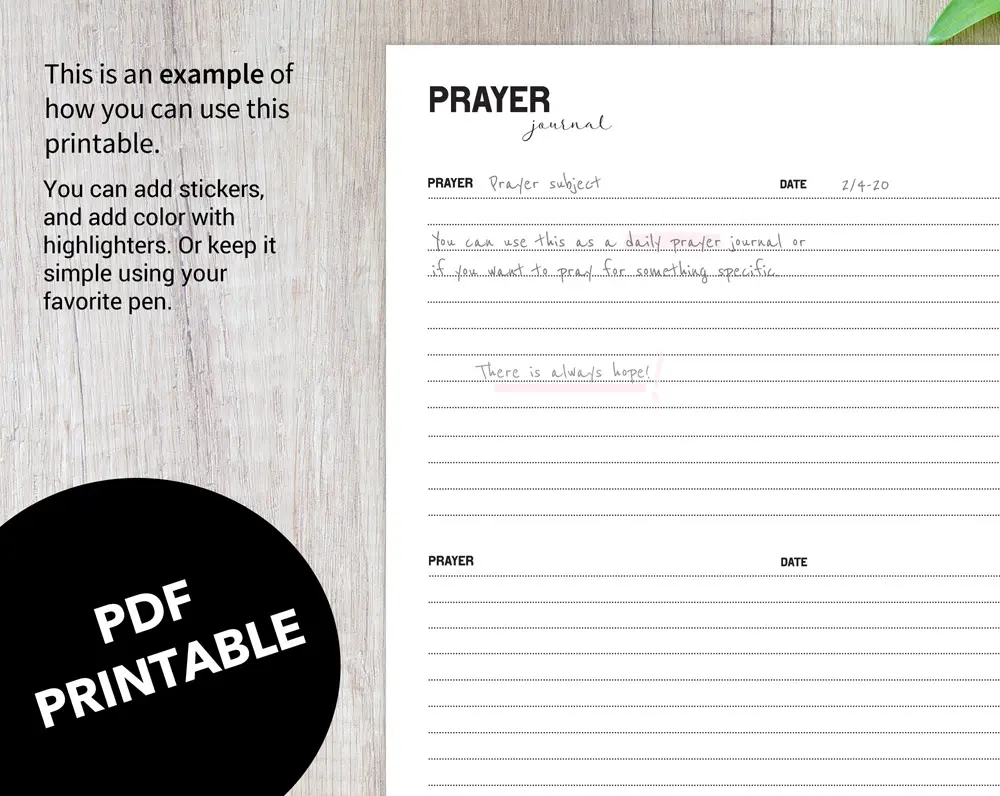 This is an example of
how you can use this
printable.
You can add stickers,
and add color with
highlighters. Or keep it
simple using your
favorite pen.
PDF
PRINTABLE
PRAYER
journal
PRAYER Prayer subject DATE 2/4-20
You can use this as a daily prayer journal or
if you want to pray for something specific.
There is always hope!
PRAYER DATE